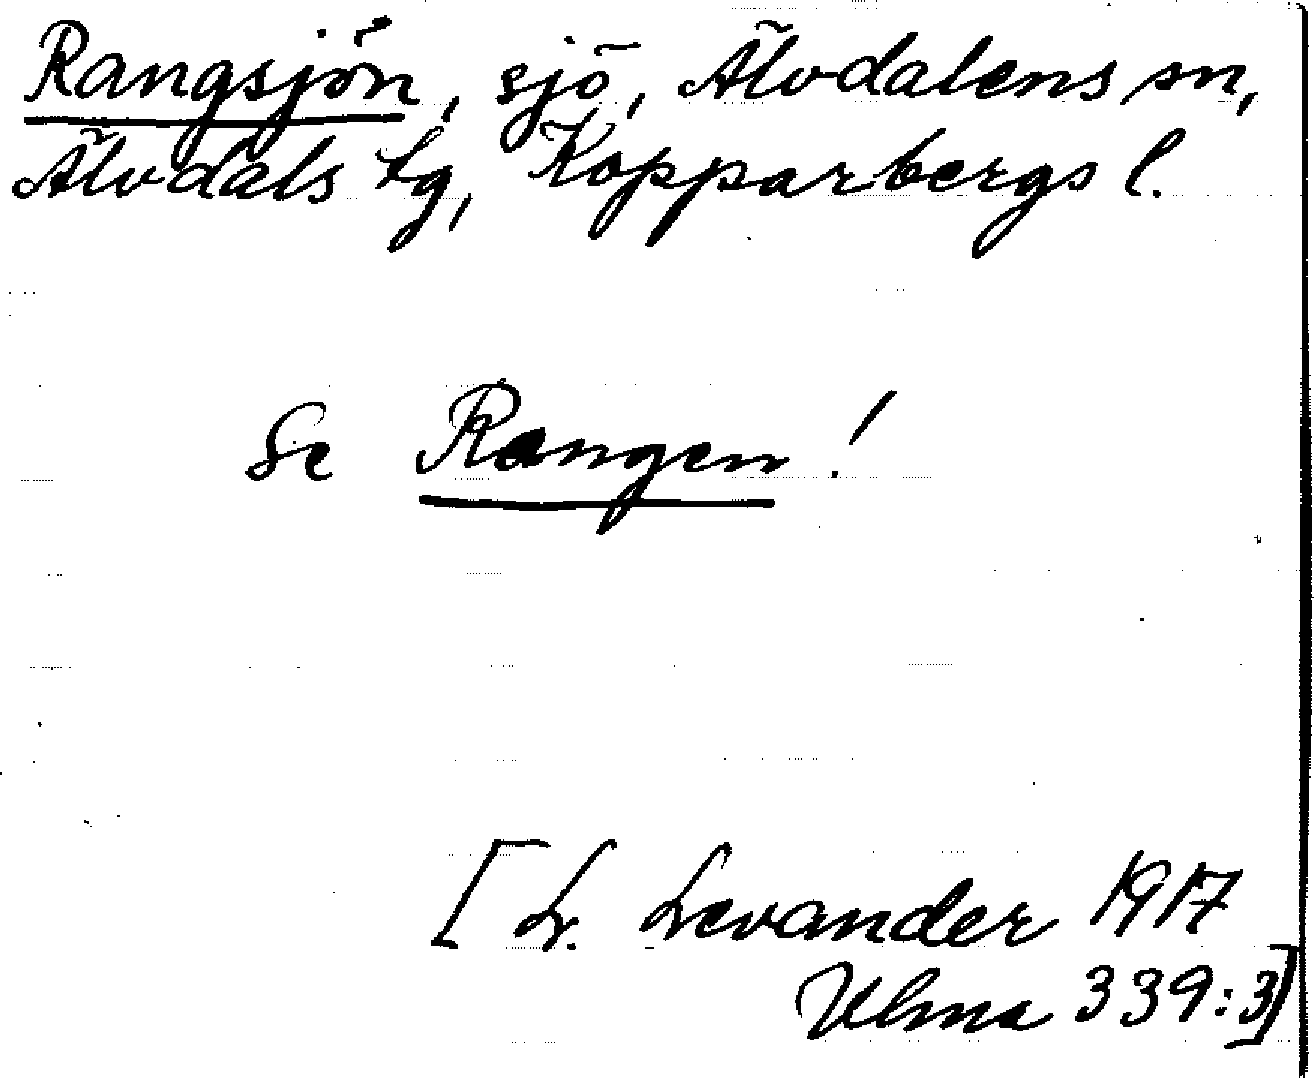 Rangsjön, sjö, Älvdalens sn,
Älvdals tg, Kopparbergs l.
Se Rangen!
[L. Levander 1917
Ulma 339:3]